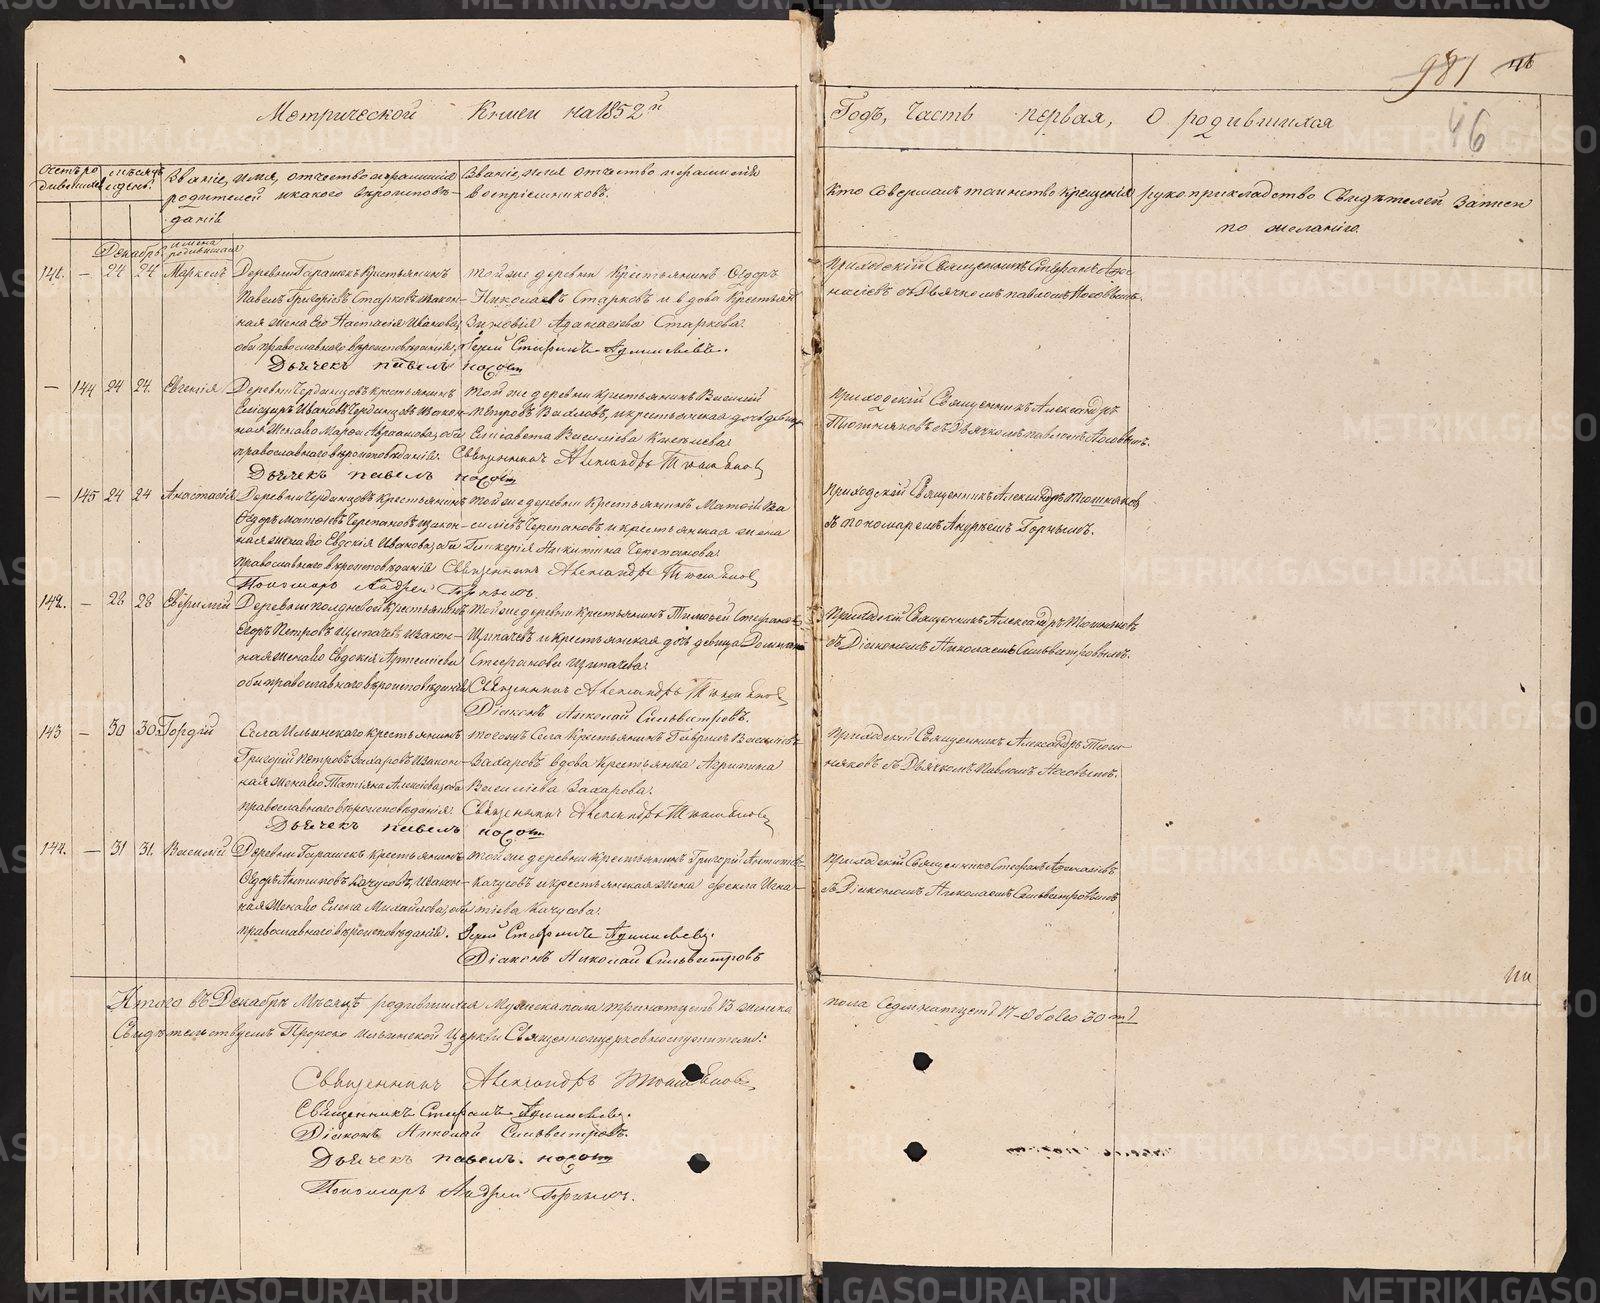 981 46
46
Метрической Книги на 1852й
Годъ, Часть первая, О родившихся
Счетъ родившихся
мѣсяцъ и день.
Званіе, имя, отчество и фамилія
родителей и какого вѣроисповѣ-
данія
Званіе, имя отчество и фамилія
воспріемниковъ.
Кто совершалъ таинство крещенія
рукоприкладство Свидѣтелей записи
по желанію.
Декабрь.
имена родившихся
141. — 24 24 Маркелъ
Деревни Гарашекъ Крестьянинъ
Павелъ Григоріевъ Старковъ, и закон-
ная жена Его Настасія Иванова,
оба православнаго вѣроисповѣданія.
Той же деревни Крестьянинъ Ѳедоръ
Николаевъ Старковъ и вдова Крестьян
Зиновія Аѳанасіева Старкова.
Іерей Стефанъ
Дьячекъ павелъ носовъ
Приходскій Священникъ Стефанъ Аѳа-
насіевъ съ Дьячкомъ павломъ Носовымъ.
— 144 24 24. Евгенія.
Деревни Чердынцовъ Крестьянинъ
Елизаръ Ивановъ Чердынцовъ и закон-
ная Жена Его Марѳа Авраамова, оба
православнаго вѣроисповѣданія.
той же деревни крестьянинъ Василій
Петровъ Вахловъ, и крестьянская дочь девица
Елисавета Василіева Князева.
Священникъ Александръ
Дьячекъ павелъ носовъ
Приходскій Священникъ Александръ
съ Дьячкомъ павломъ Носовымъ.
— 145 24 24 Анастасія
Деревни Чердынцовъ Крестьянинъ
Ѳедоръ Матѳіевъ Черепановъ, и закон-
ная жена Его Евдокія Иванова, оба
православнаго вѣроисповѣданія
той же деревни Крестьянинъ Матѳій Ва
силіевъ Черепановъ и крестьянская жена
Гликерія Никитина Черепанова.
Священникъ Александръ
Пономарь Андрей Горныхъ.
Приходской Священникъ Александръ
съ пономаремъ Андреемъ Горнымъ.
142. — 28 28
Деревни полдневой Крестьянинъ
Егоръ Петровъ Щипачевъ и закон-
ная жена Его Евдокія Артеміева
оба православнаго вѣроисповѣданія.
той же деревни Крестьянинъ Тимоѳей Стефановъ
Щипачевъ и крестьянская дочь девица
Стефанова Щипачева.
Священникъ Александръ
Діаконъ Николай Сильвестровъ.
Приходскій Священникъ Александръ
съ Діакономъ Николаемъ Сильвестровымъ.
143 — 30 30. Гордій
Села Ильинскаго крестьянинъ
Григорій Петровъ Захаровъ и закон-
ная жена Его Татіана Алексіева, оба
православнаго вѣроисповѣданія.
того жъ Села Крестьянинъ Гавріилъ Василіевъ
Захаровъ вдова крестьянка Агрипина
Василіева Захарова.
Священникъ Александръ
Дьячекъ павелъ носовъ
Приходскій Священникъ Александръ
съ Дьячкомъ Павломъ Носовымъ.
144. — 31 31. Василій
Деревни Гарашекъ Крестьянинъ
Ѳедоръ Антиповъ Качусовъ, и закон-
ная жена Его Елена Михайлова, оба
православнаго вѣроисповѣданія.
той же деревни крестьянинъ Григорій Антиповъ
Качусовъ и крестьянская жена Ѳекла Игна
тіева Качусова.
Іерей Стефанъ
Діаконъ Николай Сильвестровъ
Приходскій Священникъ Стефанъ Аѳанасіевъ
съ Діакономъ Николаемъ Сильвестровымъ
Итого въ Декабрѣ Мѣсяцѣ родившихся Мужеска пола тринатцеть 13 женска
пола Седмнатцеть 17 - Обоего 30ть
Свидѣтельствуемъ Пророко Ильинской Церкви Священноцерковнослужители:
Священникъ Александръ
Священникъ Стефанъ
Діаконъ Николай Сильвестровъ.
Дьячекъ павелъ. носовъ
Пономарь Андрей Горныхъ.
METRIKI.GASO-URAL.RU